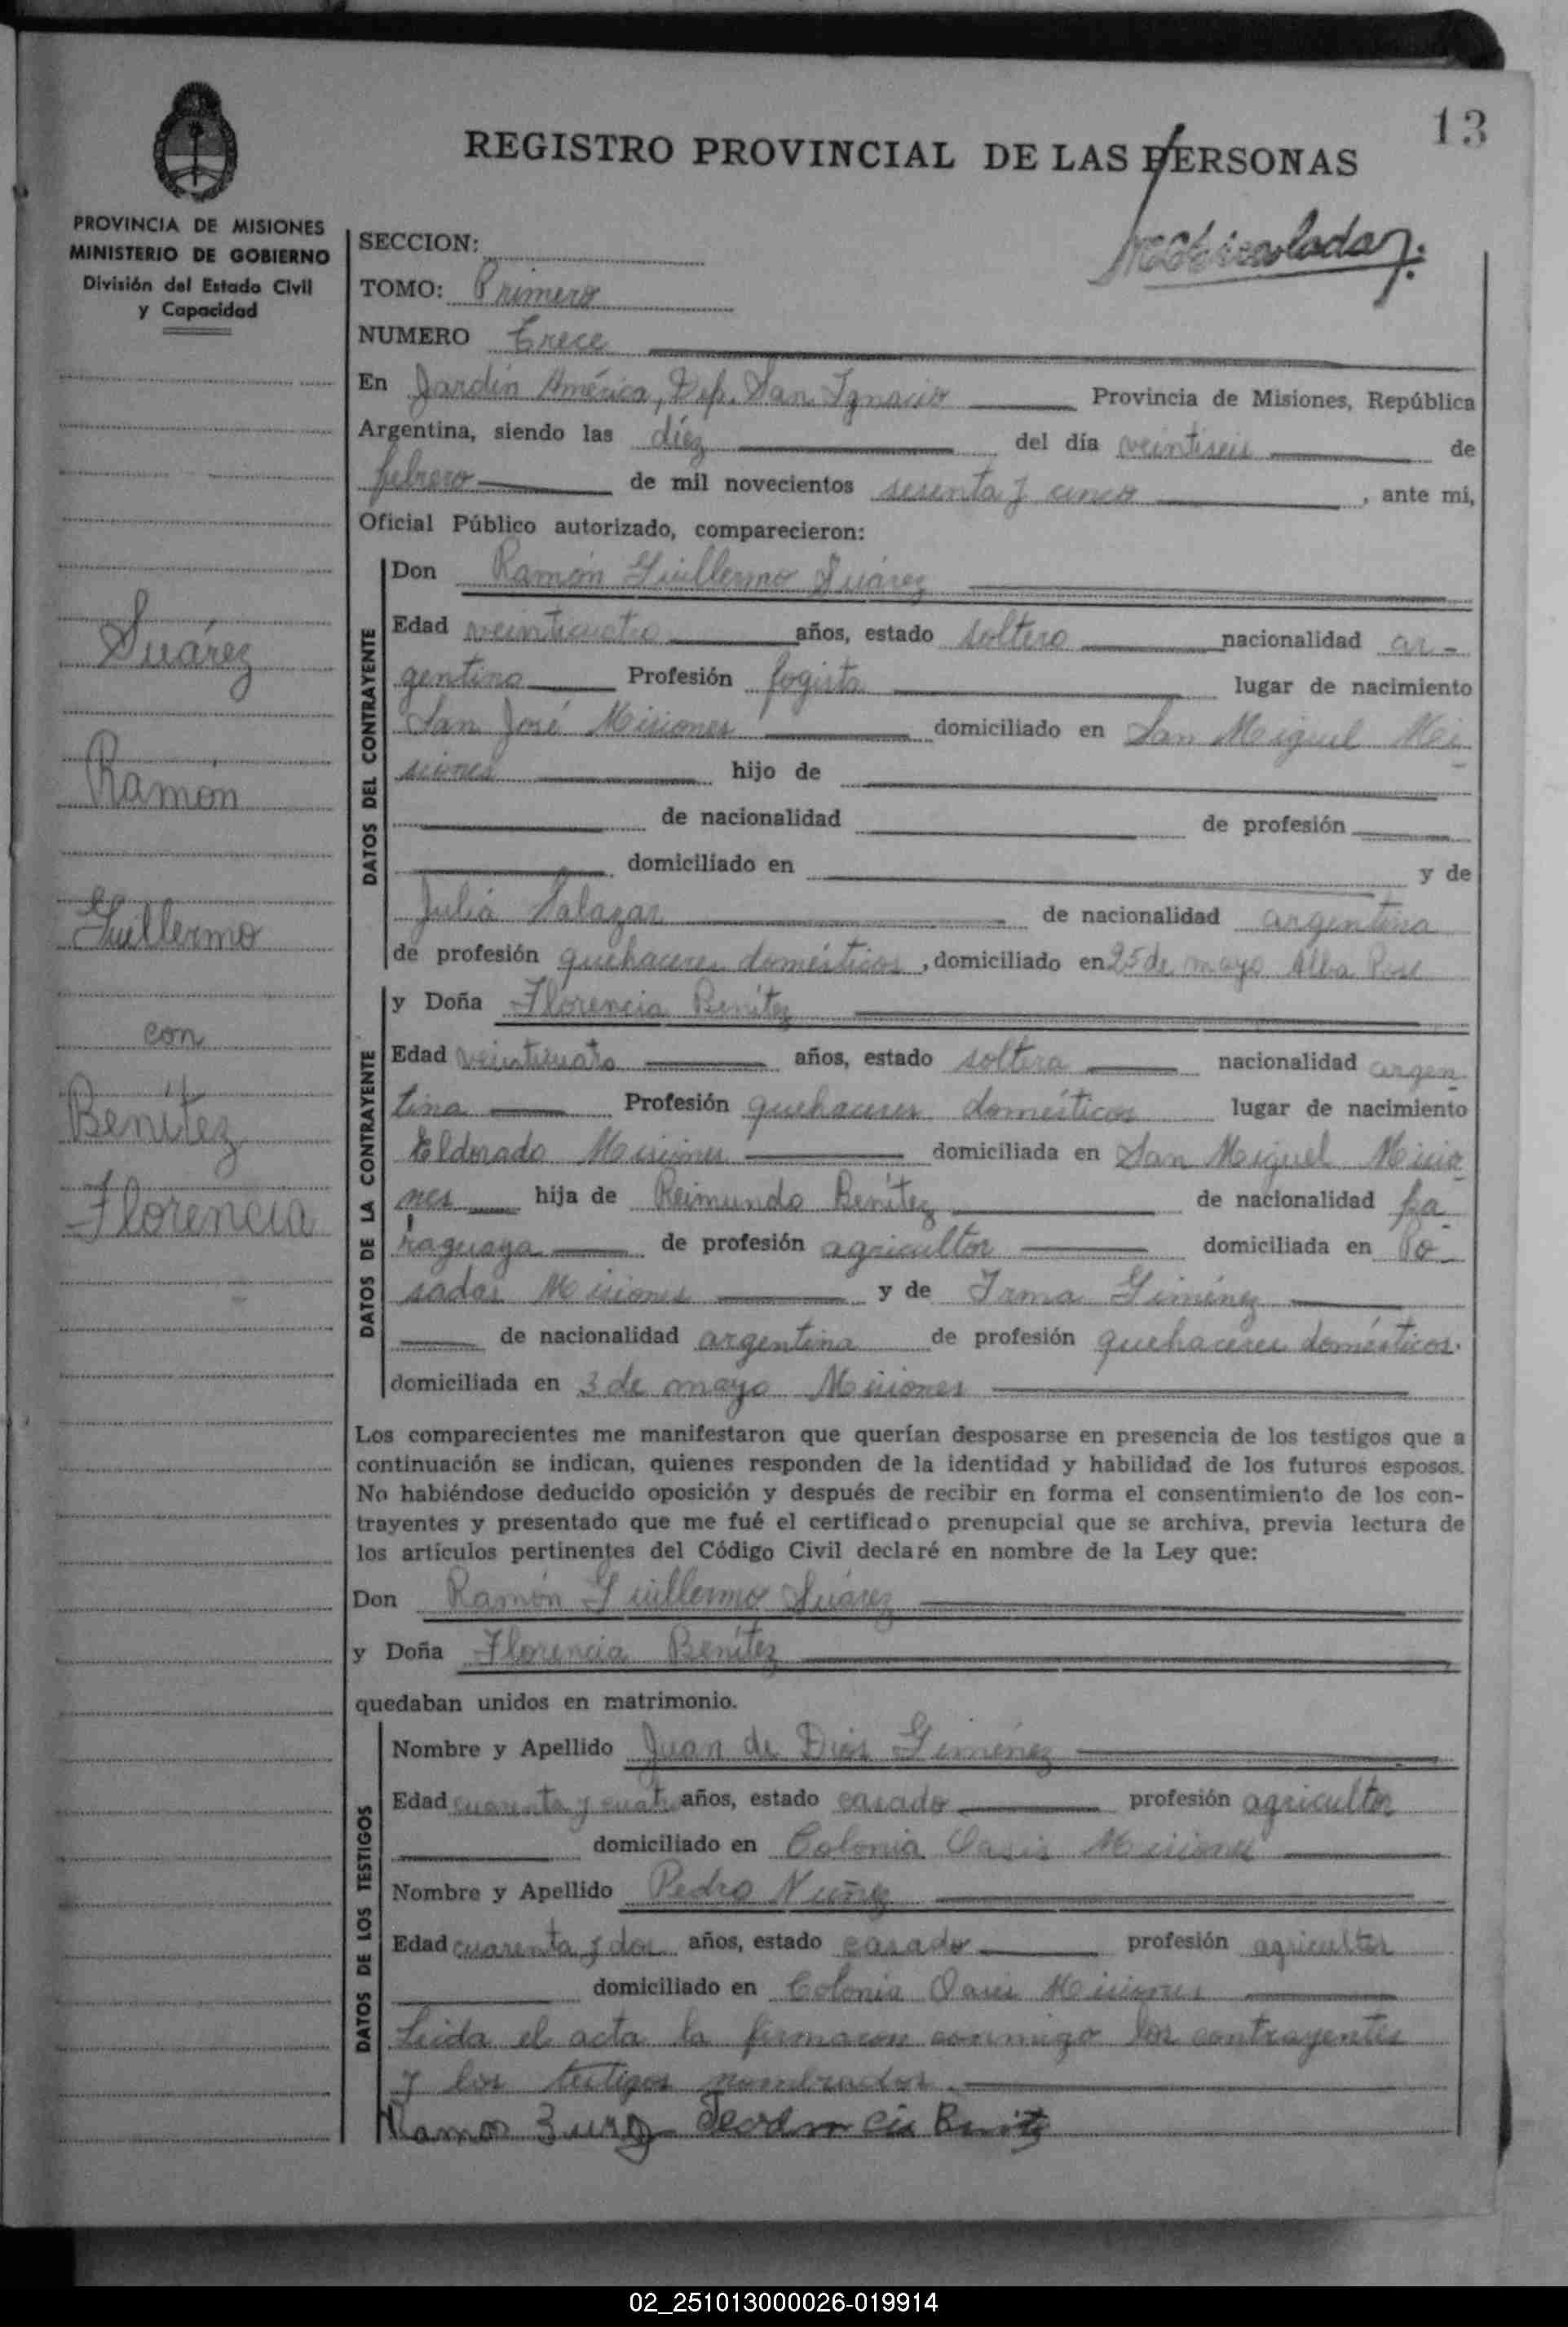 13
REGISTRO PROVINCIAL DE LAS PERSONAS
PROVINCIA DE MISIONES
MINISTERIO DE GOBIERNO
División del Estado Civil
y Capacidad
SECCION:
TOMO: Primero
NUMERO Trece
En Jardín América, Dep. San Ignacio Provincia de Misiones, República
Argentina, siendo las diéz del día veintiseis de
febrero de mil novecientos sesenta y cinco, ante mi,
Oficial Público autorizado, comparecieron:
Suárez
Ramón
Guillermo
con
Benítez
Florencia
DATOS DEL CONTRAYENTE
Don Ramón Guillermo Suárez
Edad veinticuatro años, estado soltero nacionalidad ar-
gentina Profesión fogista lugar de nacimiento
San José Misiones domiciliado en San Miguel Mi
siones hijo de
de nacionalidad de profesión
domiciliado en y de
Julia Salazar de nacionalidad argentina
de profesión quehaceres domésticos, domiciliado en 25 de mayo Alba Pose
DATOS DE LA CONTRAYENTE
y Doña Florencia Benítez
Edad veinticuatro años, estado soltera nacionalidad argen
tina Profesión quehaceres domésticos lugar de nacimiento
Eldorado Misiones domiciliada en San Miguel Misio
nes hija de Reimundo Benítez de nacionalidad pa
raguaya de profesión agricultor domiciliada en Po
sadas Misiones y de Irma Giménez
de nacionalidad argentina de profesión quehaceres domésticos.
domiciliada en 3 de mayo Misiones
Los comparecientes me manifestaron que querían desposarse en presencia de los testigos que a
continuación se indican, quienes responden de la identidad y habilidad de los futuros esposos.
No habiéndose deducido oposición y después de recibir en forma el consentimiento de los con-
trayentes y presentado que me fué el certificado prenupcial que se archiva, previa lectura de
los artículos pertinentes del Código Civil declaré en nombre de la Ley que:
Don Ramón Guillermo Suárez
y Doña Florencia Benítez
quedaban unidos en matrimonio.
DATOS DE LOS TESTIGOS
Nombre y Apellido Juan de Dios Giménez
Edad cuarenta y cuatro años, estado casado profesión agricultor
domiciliado en Colonia Oasis Misiones
Nombre y Apellido Pedro Nuñez
Edad cuarenta y dos años, estado casado profesión agricultor
domiciliado en Colonia Oasis Misiones
Leída el acta la firmaron conmigo los contrayentes
y los testigos nombrados.
02_251013000026-019914